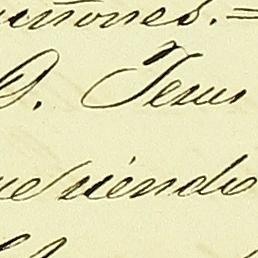 uiñones.=
D. Jesus
ue siendo